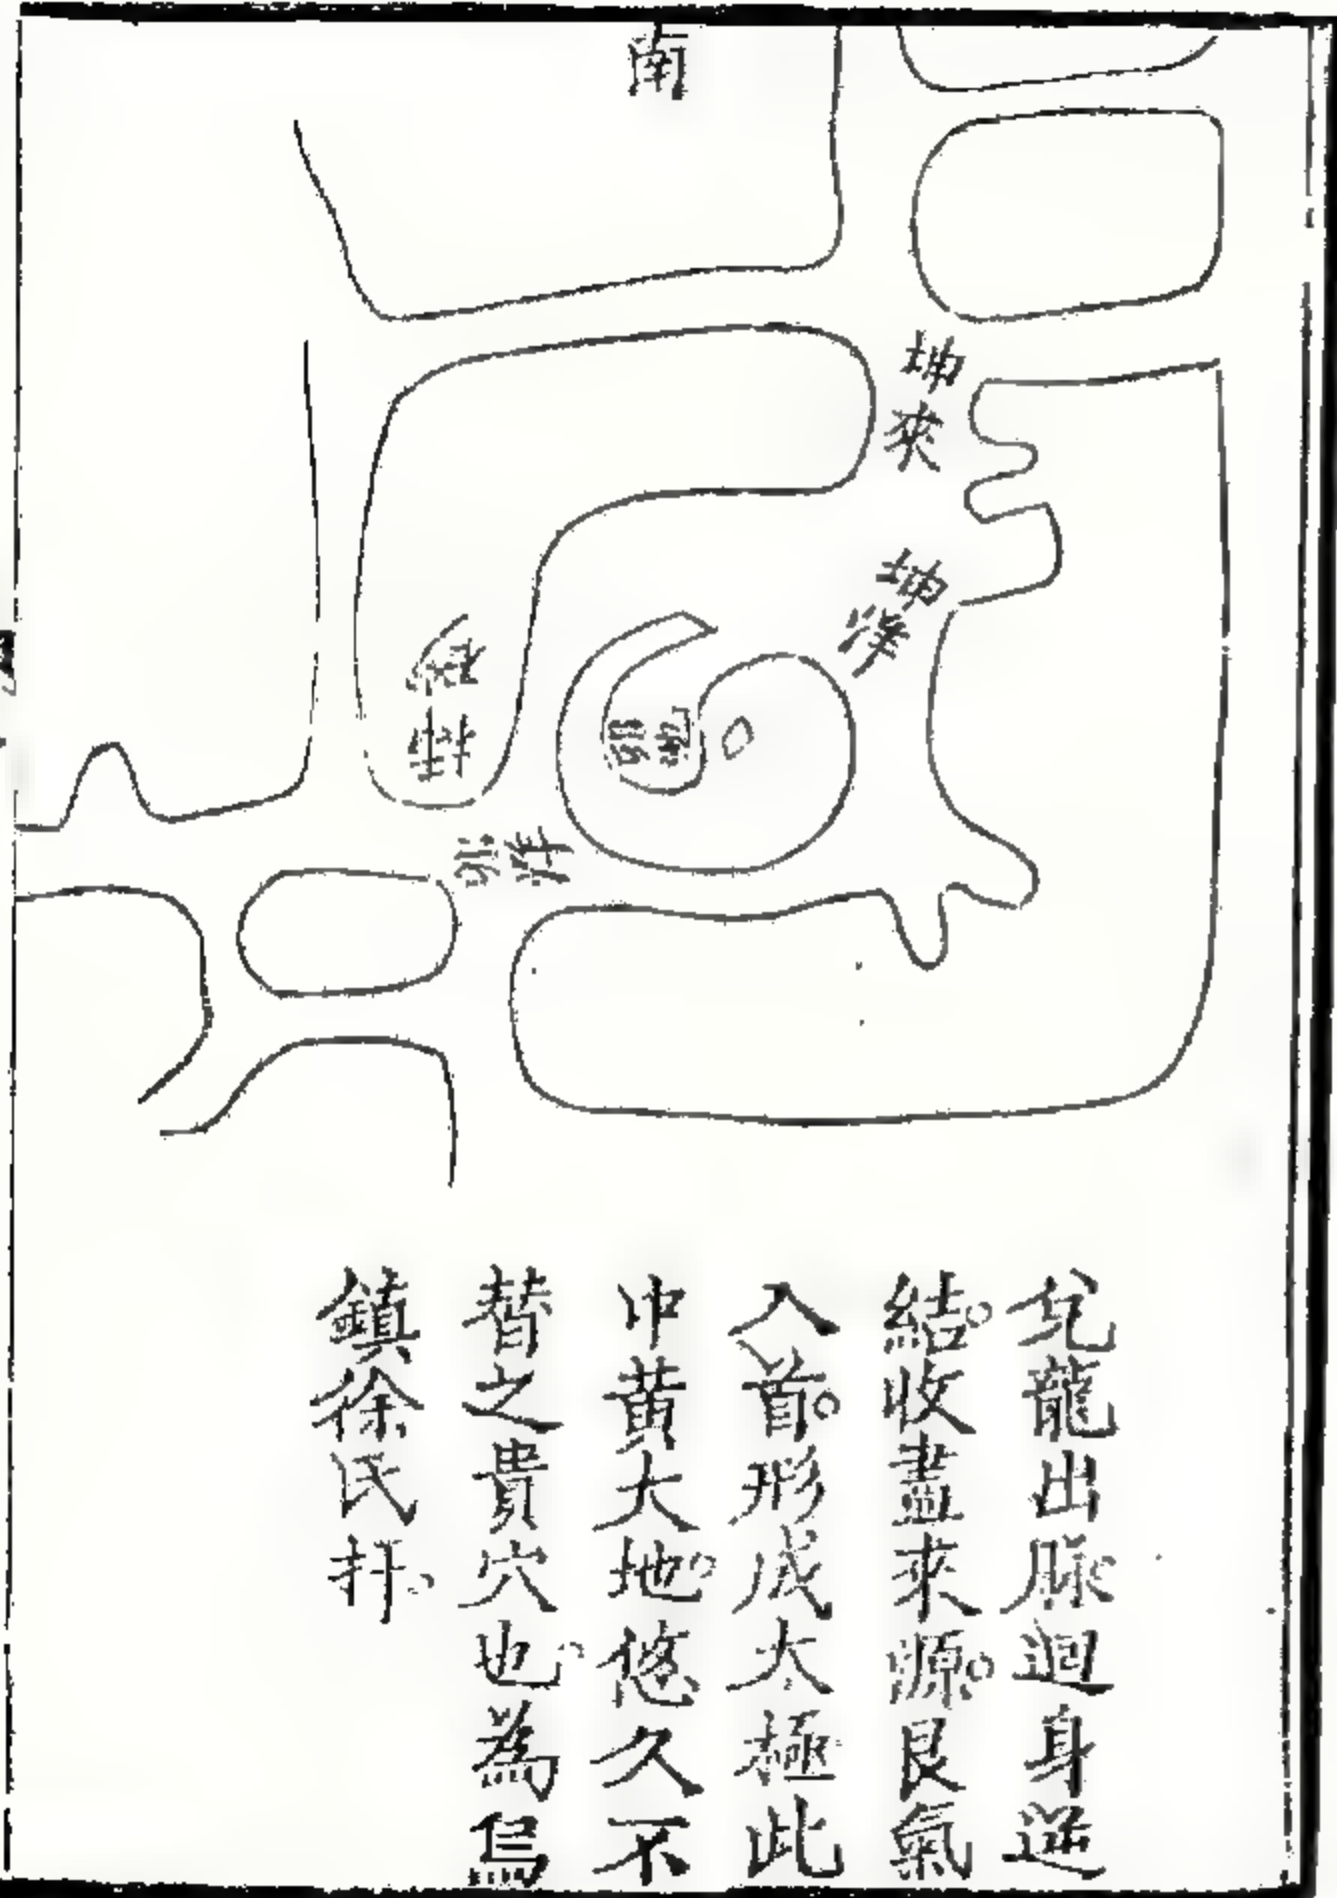 南
坤來
坤洋
兌龍出脉迴身逆
結收盡來源艮氣
入首形成太極此
中黃大地悠久不
替之貴穴也為烏
鎮徐氏扦